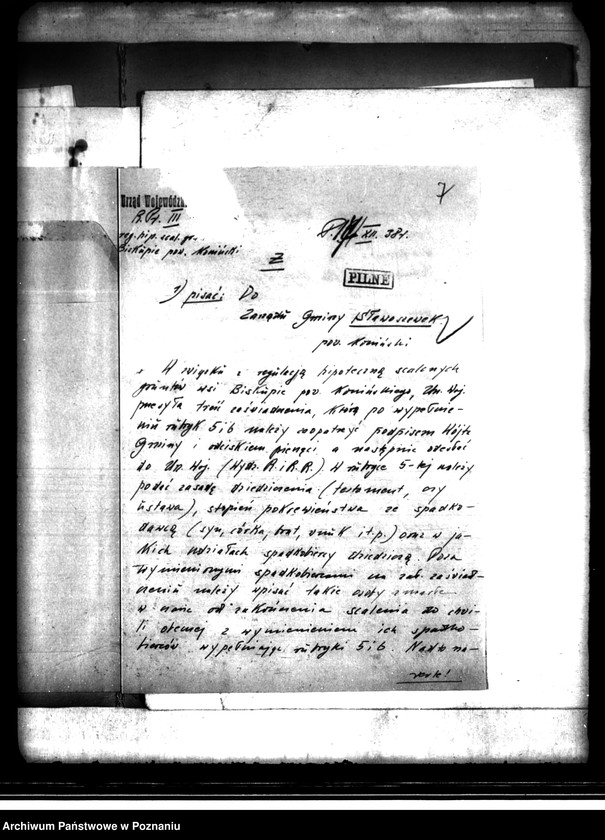 7
Urząd Wojewódz
R.G. III
reg. hip. scal. gr.
Biskupie pow. Koniński
XII. 38 r.
2
PILNE
1) pisać: Do
Zarządu Gminy Sławoszewek
pow. Koniński
W związku z regulacją hipoteczną scalonych
gruntów wsi Biskupie pow. Konińskiego, Urz. Woj.
przesyła treść zaświadczenia, którą po wypełnie-
niu rubryk 5 i 6 należy zaopatrzyć podpisem Wójta
Gminy i odciskiem pieczęci a następnie odesłać
do Urz. Woj. (Wydz. R. i R.R.) W rubryce 5-tej należy
podać zasadę dziedziczenia (testament, czy
ustawa), stopień pokrewieństwa ze spadko-
dawcą (syn, córka, brat, wnuk i t.p.) oraz w ja-
kich udziałach spadkobiercy dziedziczą. Poza
wymienionymi spadkobiercami na zaświad-
czeniu należy wpisać także osoby zmarłe
w czasie od zakończenia scalenia do chwi-
li obecnej z wymienieniem ich spadko-
bierców, wypełniając rubryki 5 i 6. Nadto na-
verte!
Archiwum Państwowe w Poznaniu